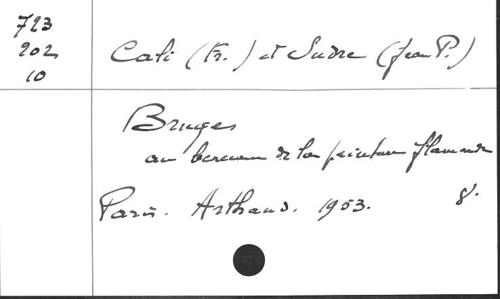 723
202
10
Cali (Fr.) et Sudre (Jean P.)
Bruges
au berceau de la peinture flamande
Paris. Arthaud. 1953. 8°.